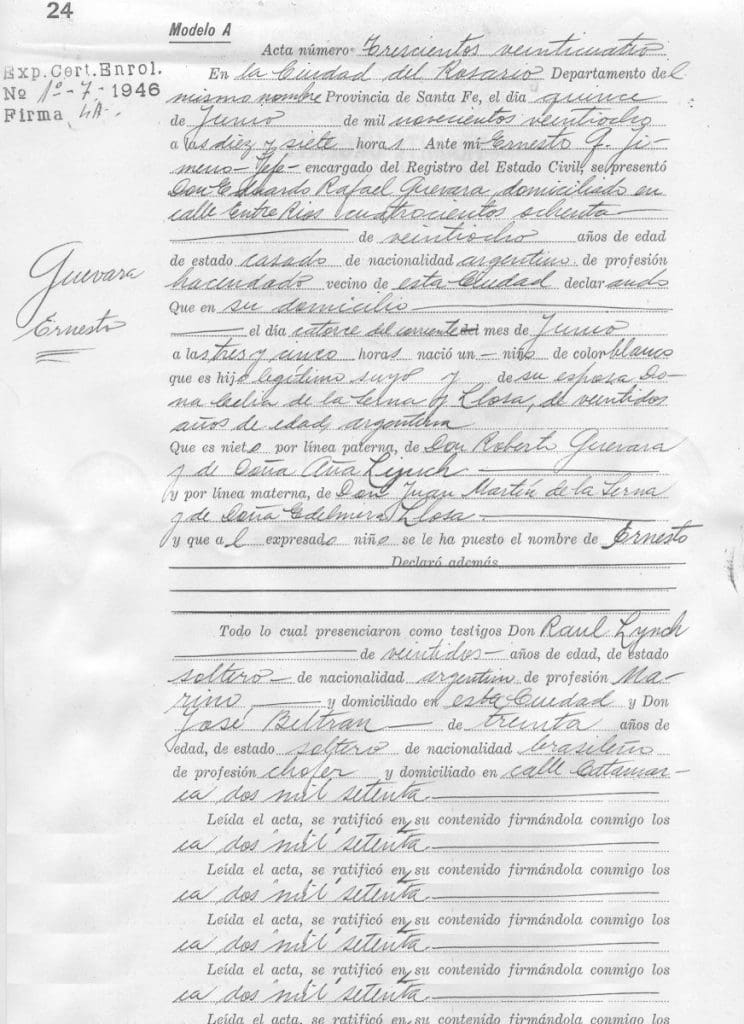 24
Modelo A
Acta número Trescientos veinticuatro
Exp. Cert. Enrol.
Nº 1º-7-1946
Firma
En la Ciudad del Rosario Departamento del
mismo nombre Provincia de Santa Fe, el día quince
de Junio de mil novecientos veintiocho
a las diez y siete horas Ante mi Ernesto G. Ji-
meno - Jefe - encargado del Registro del Estado Civil, se presentó
Don Eduardo Rafael Guevara, domiciliado en
calle Entre Rios cuatrocientos ochenta
de veintiocho años de edad
de estado casado de nacionalidad argentino de profesión
hacendado vecino de esta Ciudad declarando
Guevara
Ernesto
Que en su domicilio
el día catorce del corriente del mes de Junio
a las tres y cinco horas nació un niño de color blanco
que es hijo legítimo suyo y de su esposa Do-
ña Celia de la Serna y Llosa, de veintidos
años de edad, argentina
Que es nieto por línea paterna, de Don Roberto Guevara
y de Doña Ana Lynch
y por línea materna, de Don Juan Martín de la Serna
y de Doña Edelmera Llosa
y que al expresado niño se le ha puesto el nombre de Ernesto
Declaró además
Todo lo cual presenciaron como testigos Don Raul Lynch
de veintidos años de edad, de estado
soltero de nacionalidad argentino de profesión Ma-
rino y domiciliado en esta Ciudad y Don
José Beltran de treinta años de
edad, de estado soltero de nacionalidad brasileño
de profesión chofer y domiciliado en calle Catamar-
ca dos mil setenta
Leída el acta, se ratificó en su contenido firmándola conmigo los
ca dos mil setenta
Leída el acta, se ratificó en su contenido firmándola conmigo los
ca dos mil setenta
Leída el acta, se ratificó en su contenido firmándola conmigo los
ca dos mil setenta
Leída el acta, se ratificó en su contenido firmándola conmigo los
ca dos mil setenta
Leída el acta, se ratificó en su contenido firmándola conmigo los